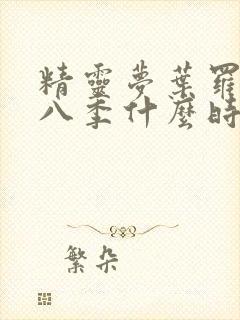 精靈夢葉羅
八季什麼時
繁朵